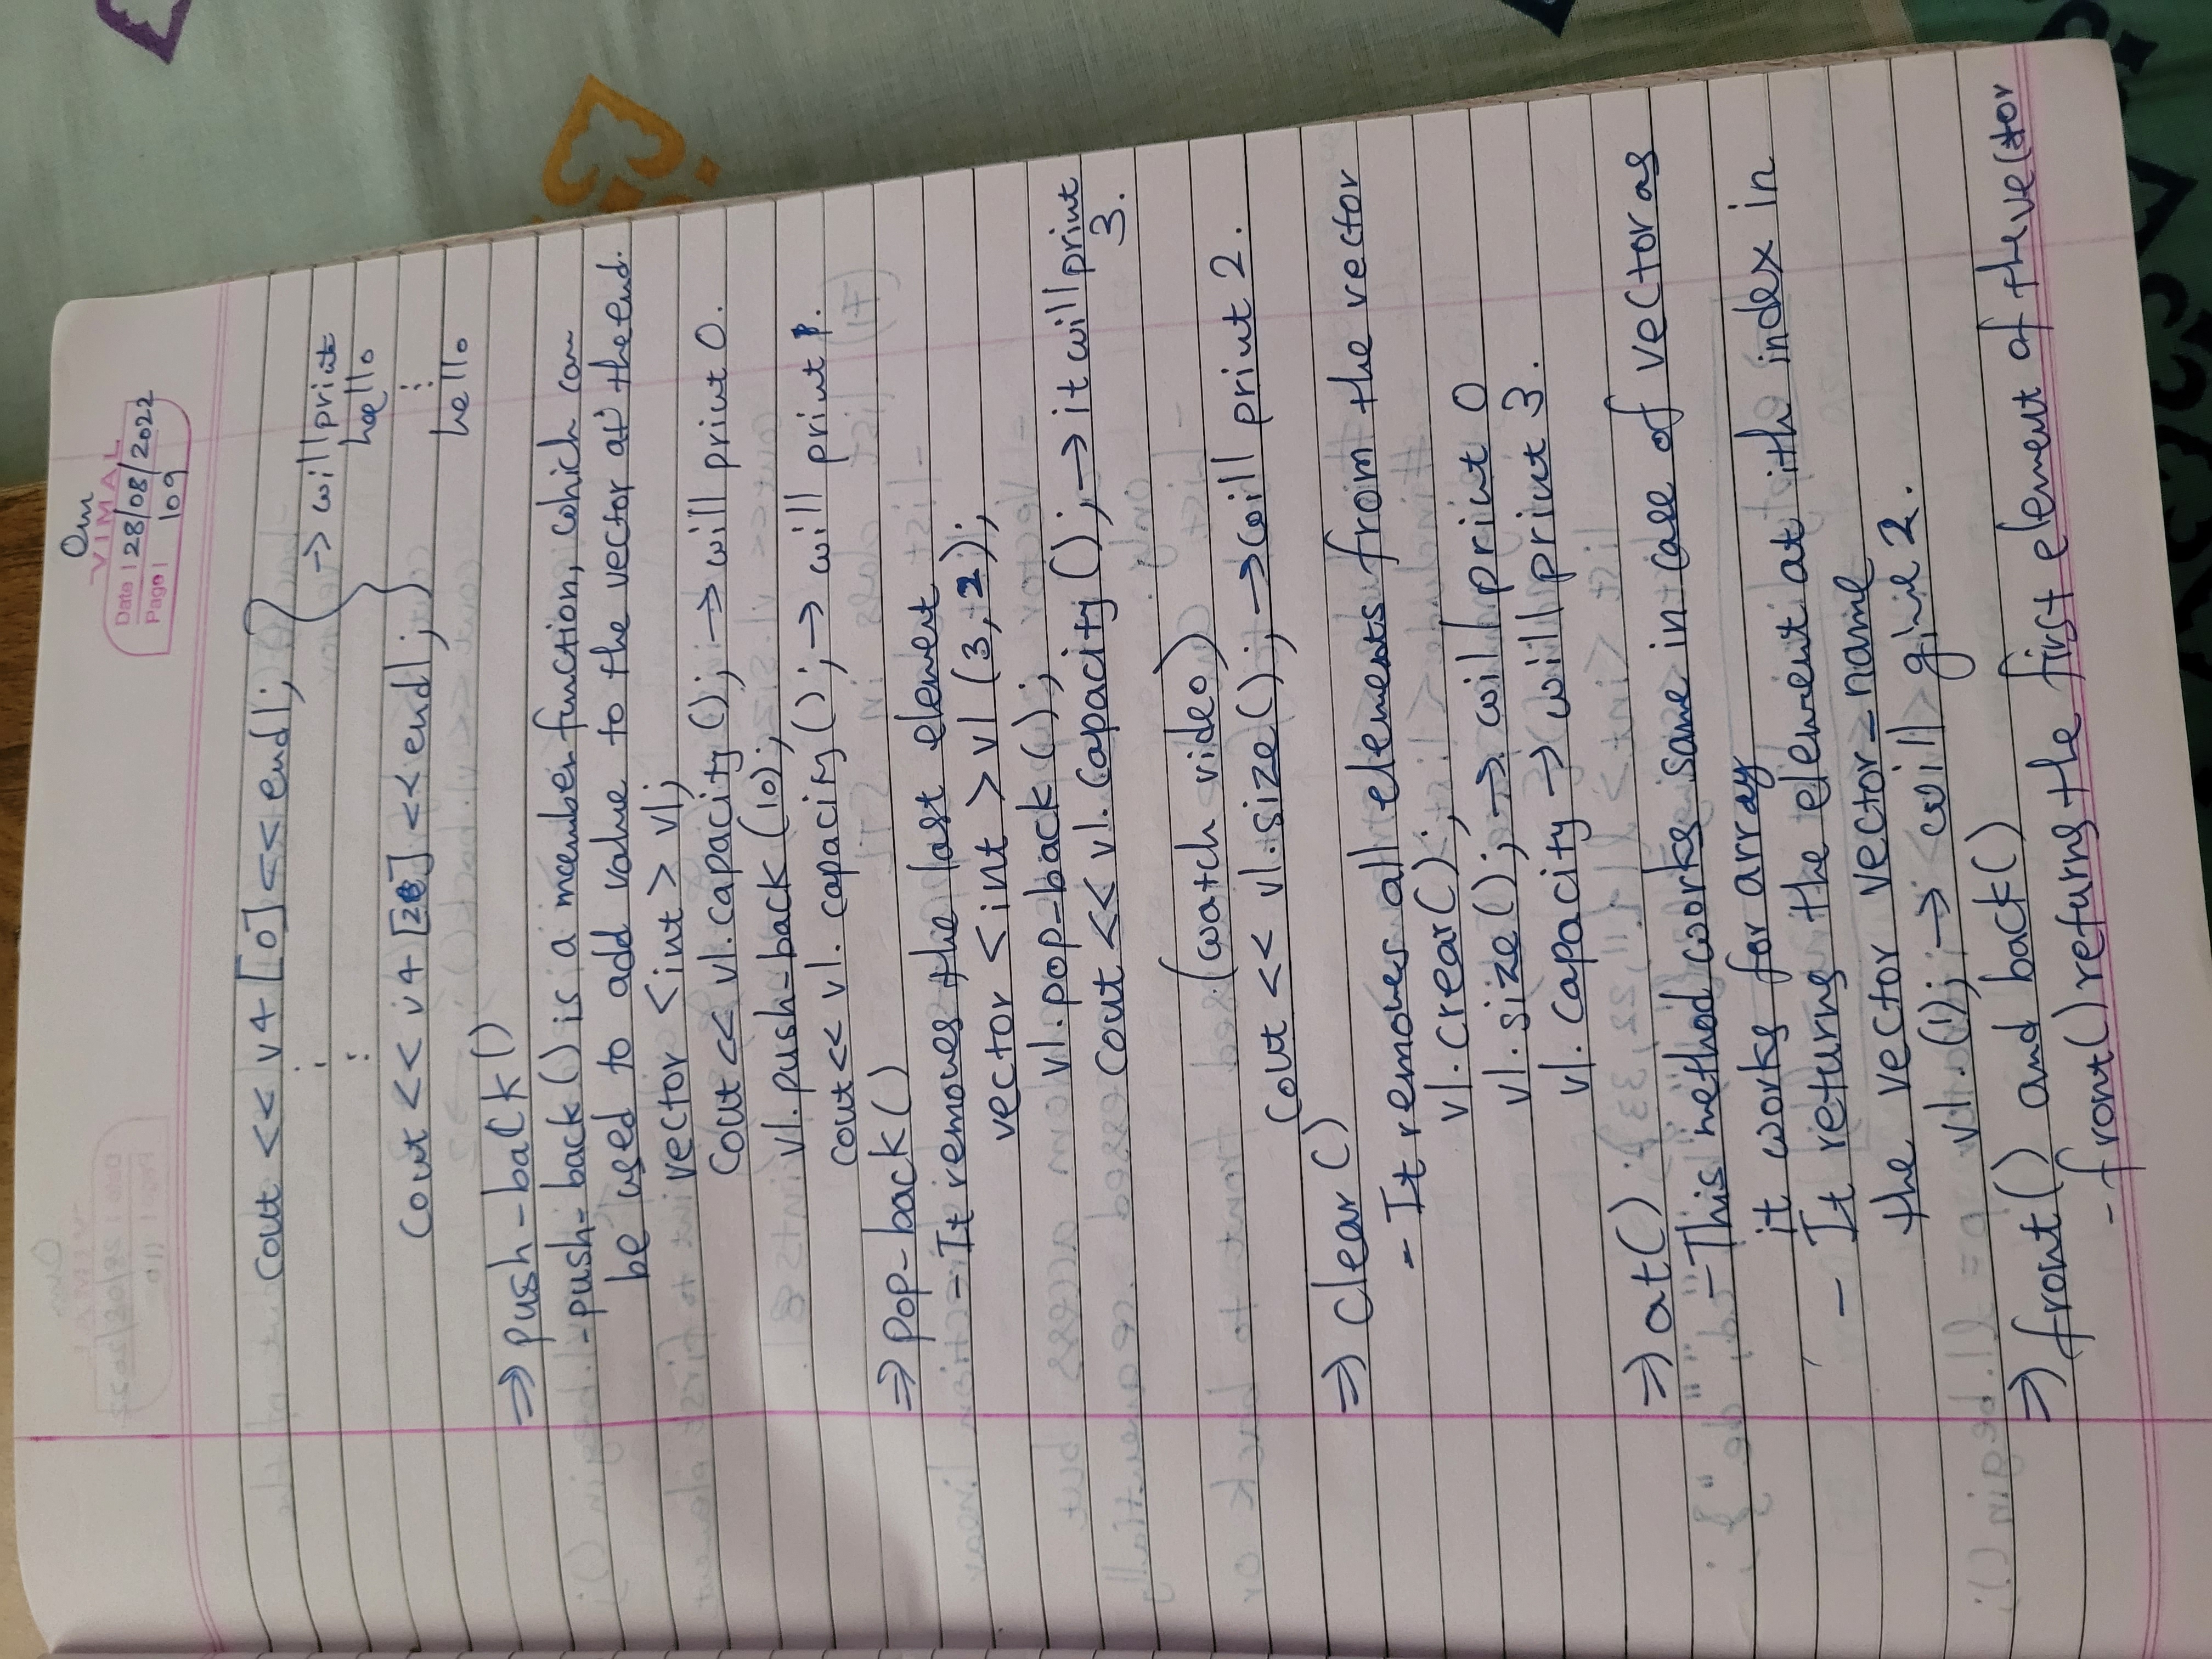 Om
VIMAL
Date | 28/08/2022
Page | 109
cout << v4[0] << endl;
:
→ will print
:
hello
cout << v4[2] << endl;
:
hello
⇒ push-back()
- push-back() is a member function, which can
be used to add value to the vector at the end.
vector <int> v1;
cout << v1.capacity(); → will print 0.
v1.push-back(10);
cout << v1.capacity(); → will print 1.
⇒ pop-back()
- It removes the last element
vector <int> v1 (3, 2);
v1.pop-back();
cout << v1.capacity(); → it will print
3.
(watch video)
cout << v1.size(); → will print 2.
⇒ clear()
- It removes all elements from the vector
v1.crear();
v1.size(); → will print 0
v1.capacity → will print 3.
⇒ at()
- This method works same in case of vector as
it works for array
- It returns the element at ith index in
the vector vector_name
v1.(1); → will give 2.
⇒ front() and back()
- front() returns the first element of the vector